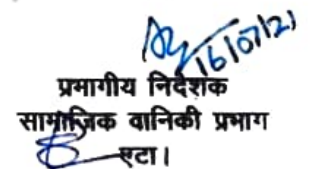 16/07/21
प्रभागीय निदेशक
सामाजिक वानिकी प्रभाग
एटा।